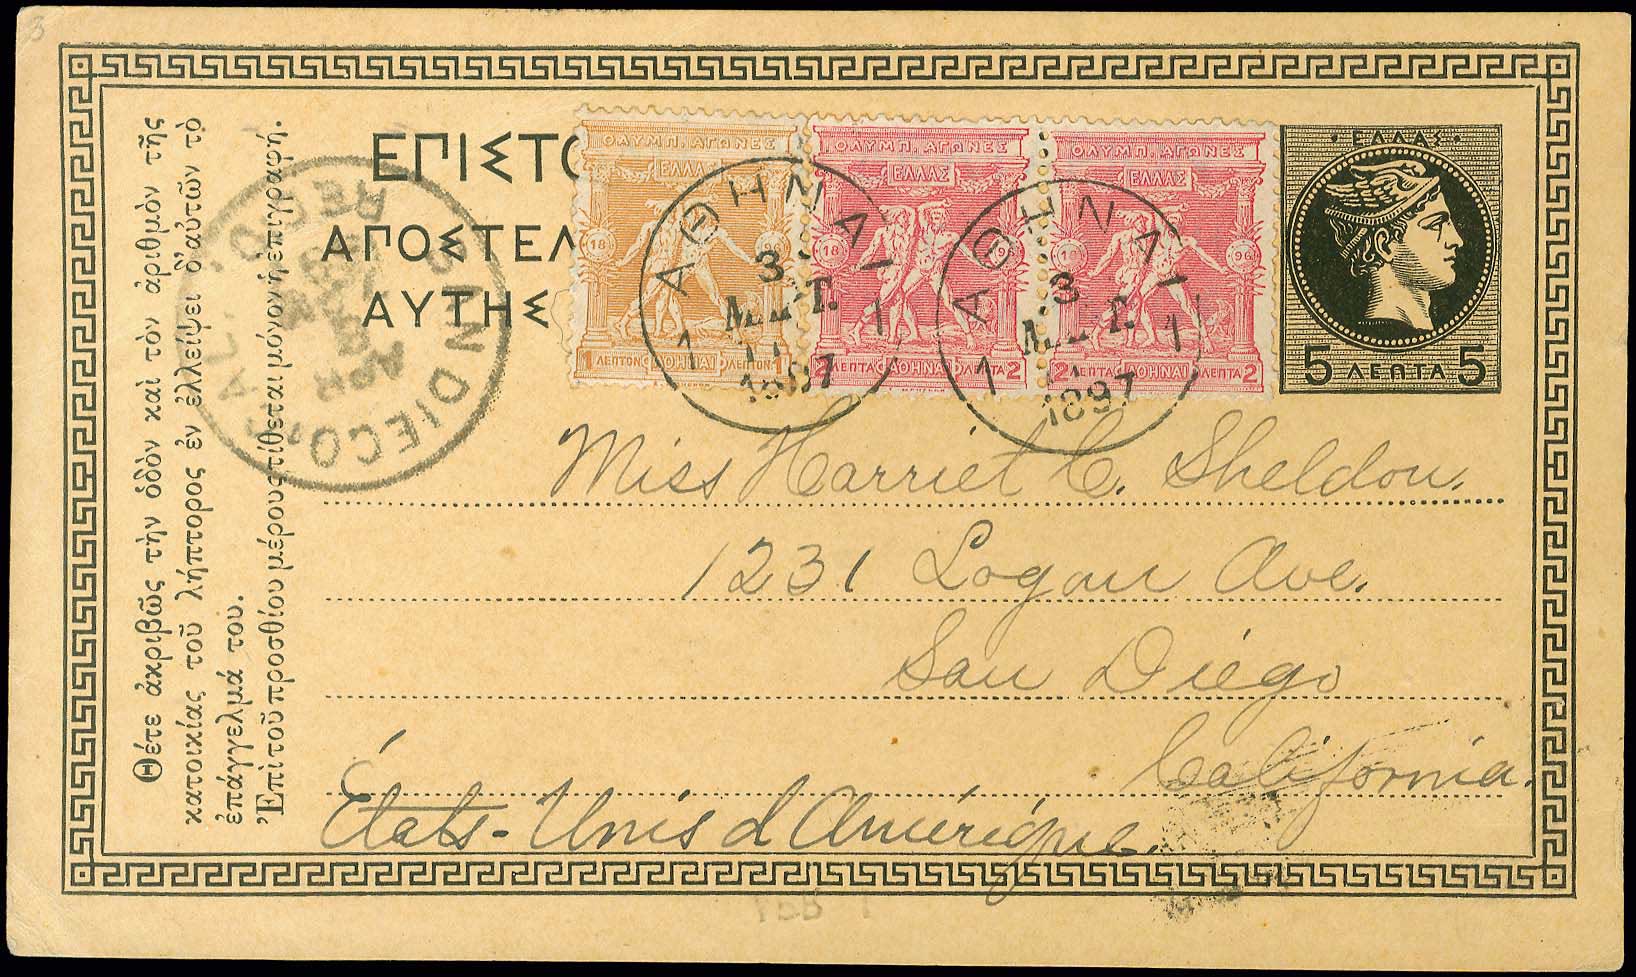 3
ΕΠΙΣΤΟ
ΑΠΟΣΤΕΛ
ΑΥΤΗΣ
Θέτε ἀκριβῶς τὴν ὁδὸν καὶ τὸν ἀριθμὸν τῆς
κατοικίας τοῦ λήπτορος ἐν ἐλλείψει δ' αὐτῶν τὸ
ἐπάγγελμά του.
Ἐπὶ τοῦ προσθίου μέρους τίθεται μόνον ἡ ἐπιγραφή.
SAN DIEGO, CAL.
REC'D.
APR
ΟΛΥΜΠ. ΑΓΩΝΕΣ
ΕΛΛΑΣ
18 96
1 ΛΕΠΤΟΝ ΑΘΗΝΑΙ ΛΕΠΤΟΝ 1
ΟΛΥΜΠ. ΑΓΩΝΕΣ
ΕΛΛΑΣ
18 9
2 ΛΕΠΤΑ ΑΘΗΝΑΙ ΛΕΠΤΑ 2
ΟΛΥΜΠ. ΑΓΩΝΕΣ
ΕΛΛΑΣ
18 96
2 ΛΕΠΤΑ ΑΘΗΝΑΙ ΛΕΠΤΑ 2
ΑΘΗΝΑΙ
3
ΜΑΡΤ.
1 1
1897
ΑΘΗΝΑΙ
3
ΜΑΡΤ.
1 1
1897
ΕΛΛΑΣ
5 ΛΕΠΤΑ 5
Miss Harriet C. Sheldon.
1231 Logan Ave.
San Diégo
California.
États-Unis d'Amérique.
FEB 1